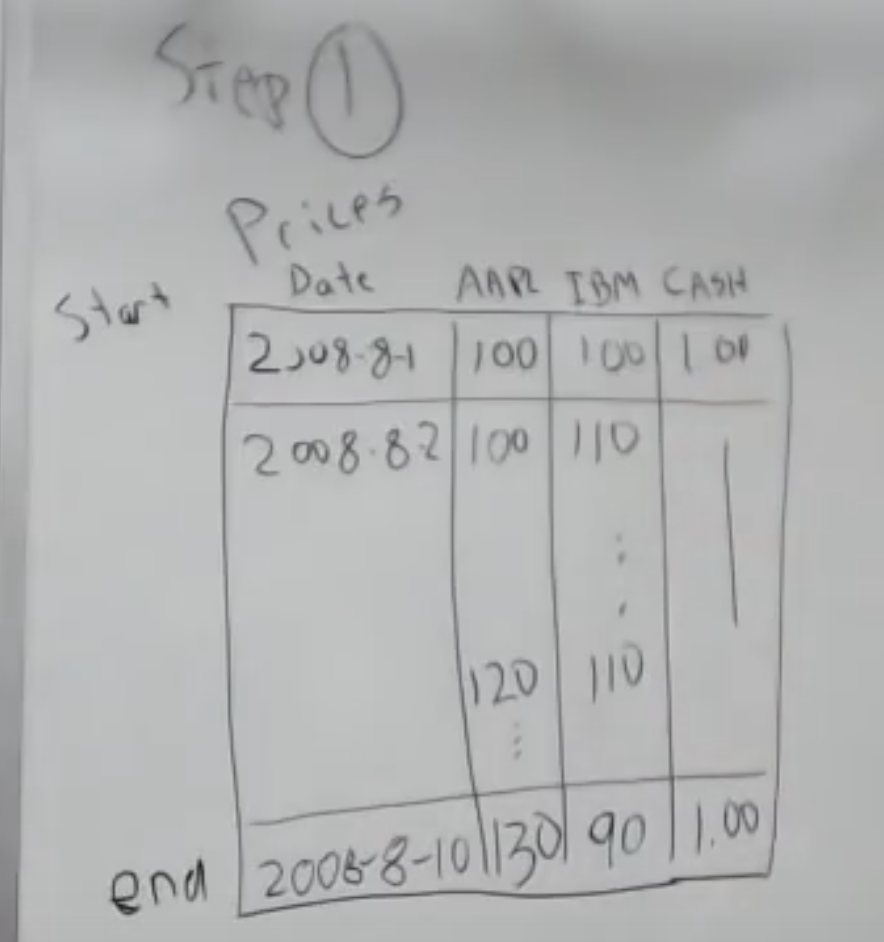 Step 1
Prices
Date AAPL IBM CASH
Start
2008-8-1 100 100 1.00
2008-8-2 100 110
120 110
end 2008-8-10 130 90 1.00